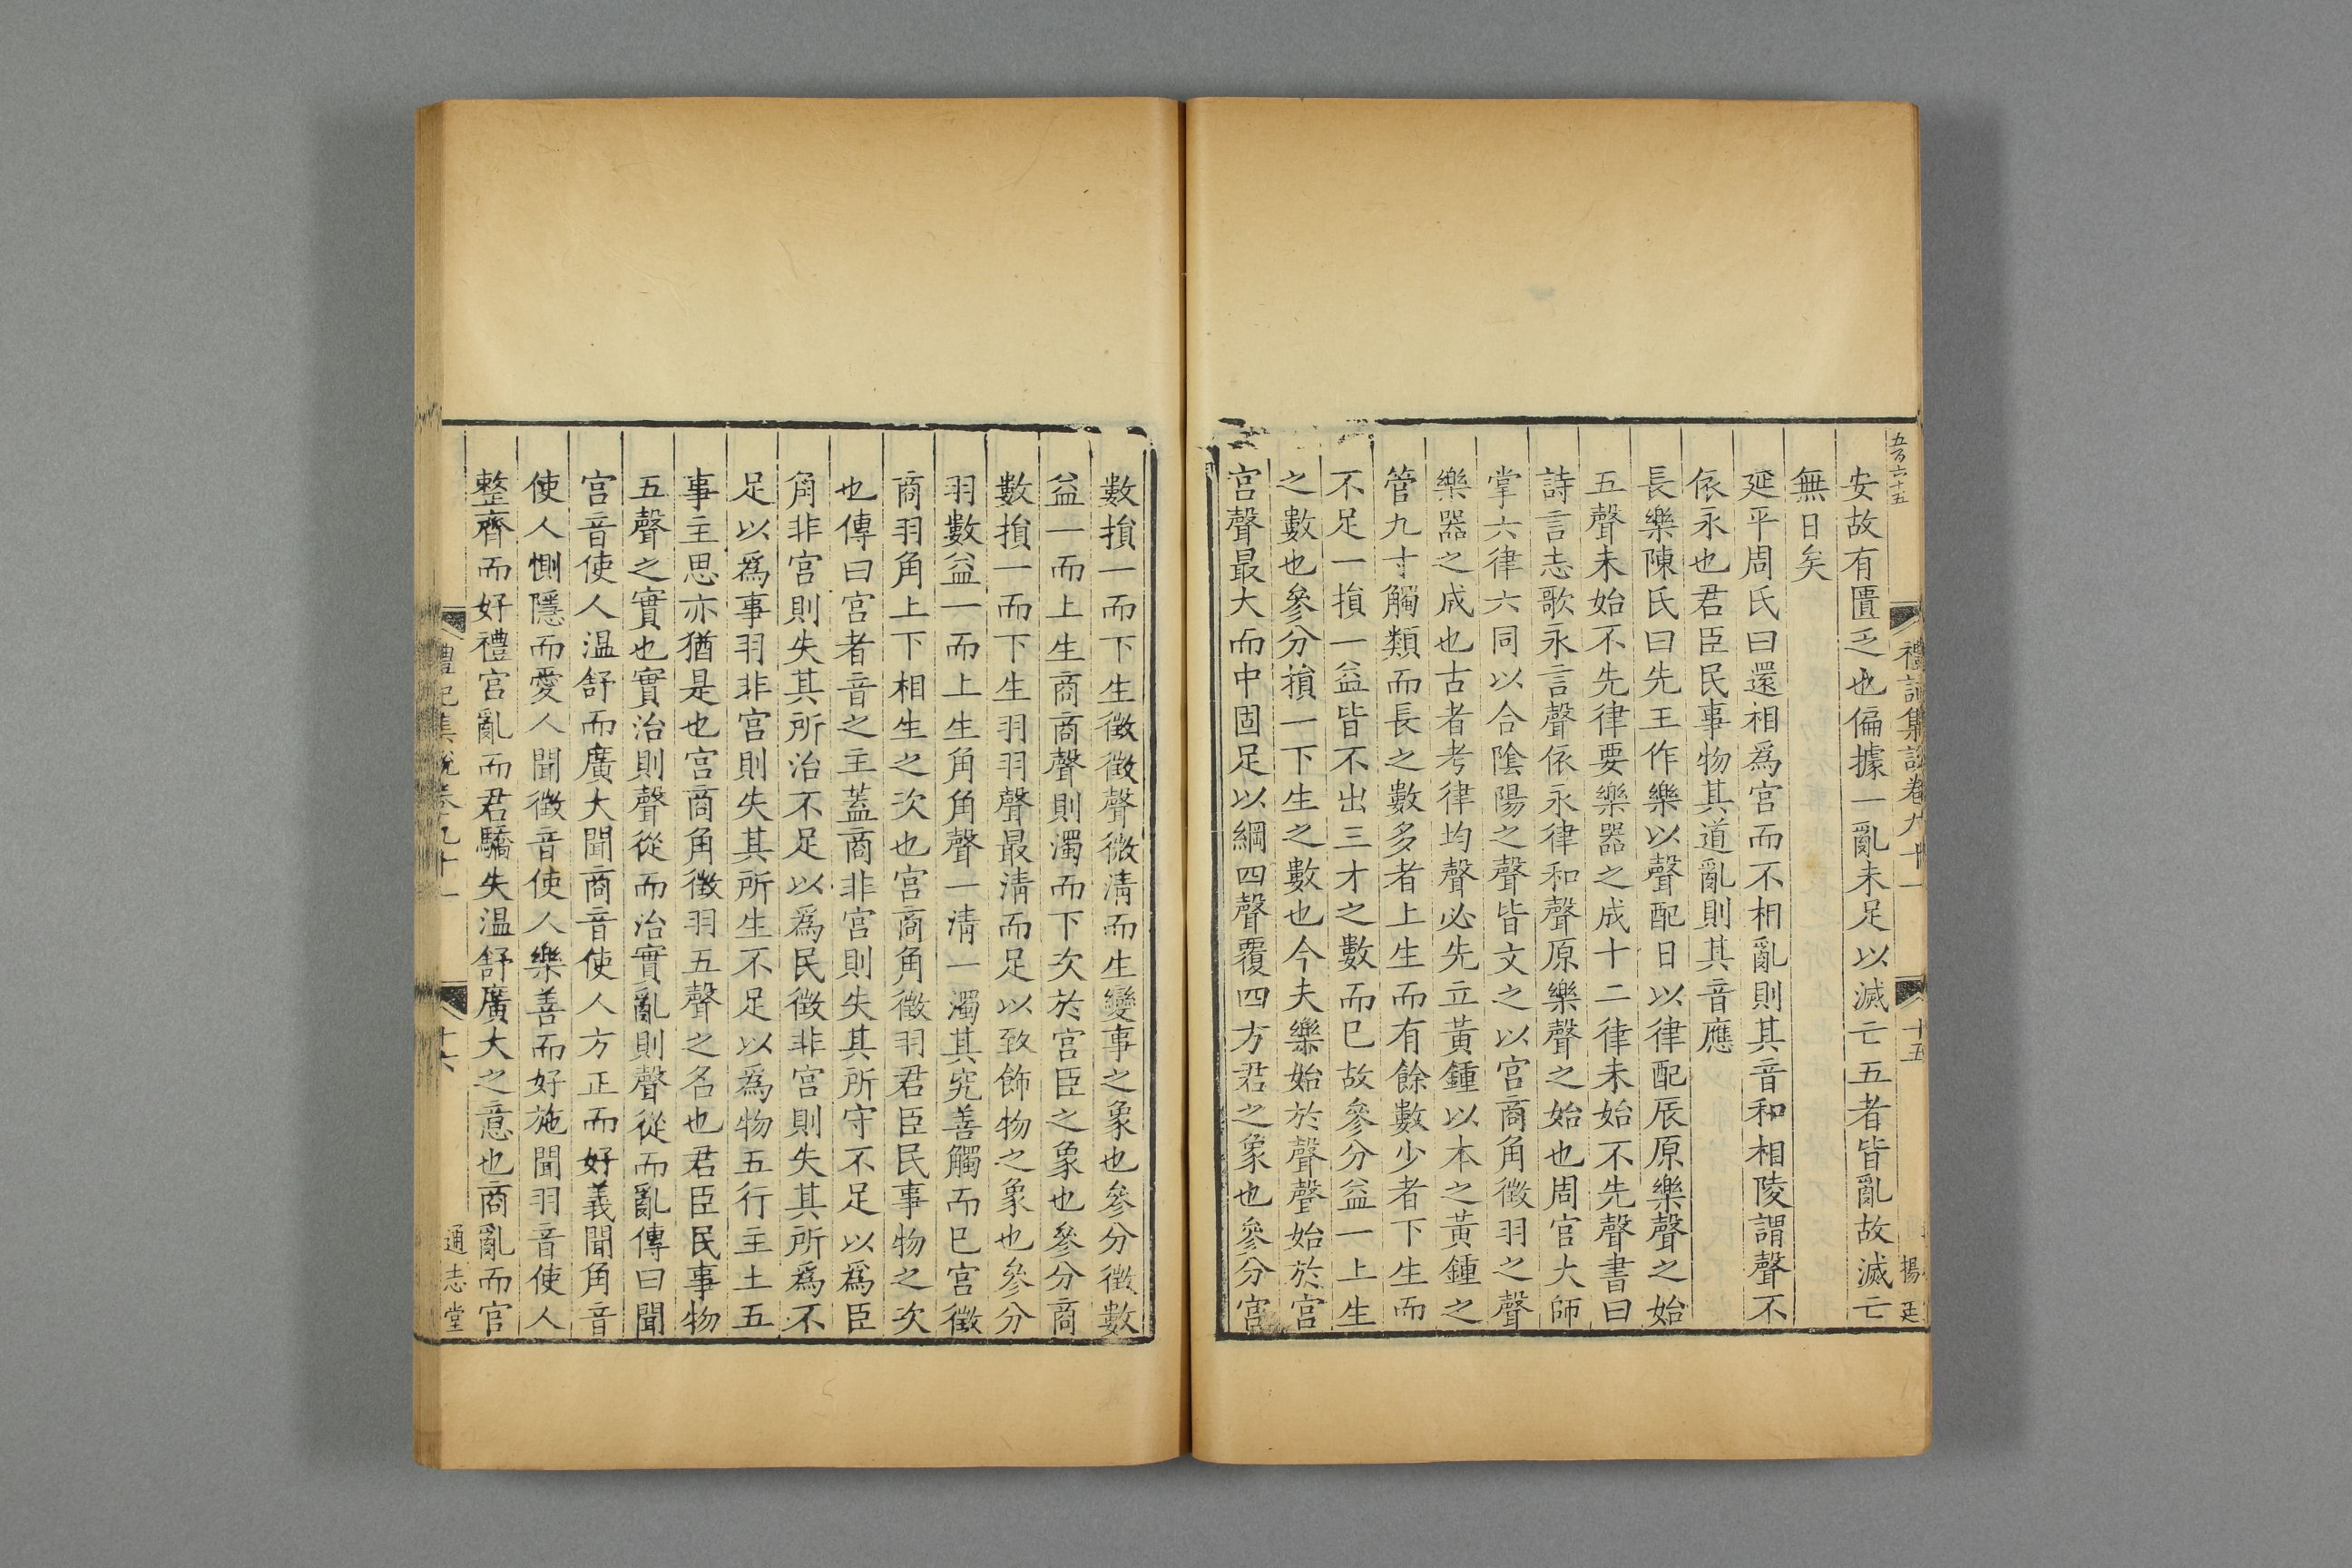 五百六十五
禮記集說卷九十一
十五
揚廷
安故有匱乏也偏據一亂未足以滅亡五者皆亂故滅亡
無日矣
延平周氏曰還相爲宮而不相亂則其音和相陵謂聲不
依永也君臣民事物其道亂則其音應
長樂陳氏曰先王作樂以聲配日以律配辰原樂聲之始
五聲未始不先律要樂器之成十二律未始不先聲書曰
詩言志歌永言聲依永律和聲原樂聲之始也周官大師
掌六律六同以合陰陽之聲皆文之以宮商角徵羽之聲
樂器之成也古者考律均聲必先立黃鍾以本之黃鍾之
管九寸觸類而長之數多者上生而有餘數少者下生而
不足一損一益皆不出三才之數而已故參分益一上生
之數也參分損一下生之數也今夫樂始於聲聲始於宮
宮聲最大而中固足以綱四聲覆四方君之象也參分宮
數損一而下生徵徵聲微清而生變事之象也參分徵數
益一而上生商商聲則濁而下次於宮臣之象也參分商
數損一而下生羽羽聲最清而足以致飾物之象也參分
羽數益一而上生角角聲一清一濁其究善觸而已宮徵
商羽角上下相生之次也宮商角徵羽君臣民事物之次
也傳曰宮者音之主蓋商非宮則失其所守不足以爲臣
角非宮則失其所治不足以爲民徵非宮則失其所爲不
足以爲事羽非宮則失其所生不足以爲物五行主土五
事主思亦猶是也宮商角徵羽五聲之名也君臣民事物
五聲之實也實治則聲從而治實亂則聲從而亂傳曰聞
宮音使人溫舒而廣大聞商音使人方正而好義聞角音
使人惻隱而愛人聞徵音使人樂善而好施聞羽音使人
整齊而好禮宮亂而君驕失溫舒廣大之意也商亂而官
禮記集說卷九十一
十六
通志堂